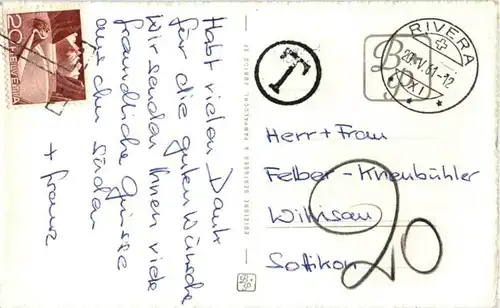 20
HELVETIA
Habt vielen Dank
für die guten Wünsche
Wir senden Ihnen viele
freundliche Grüsse
aus dem Süden
+ Franz
EDIZIONE BERINGER & PAMPALUCHI, ZURICO 27
T
RIVERA
-12
Herr + Frau
Felber-Kneubühler
Willisau
Sottikon
20